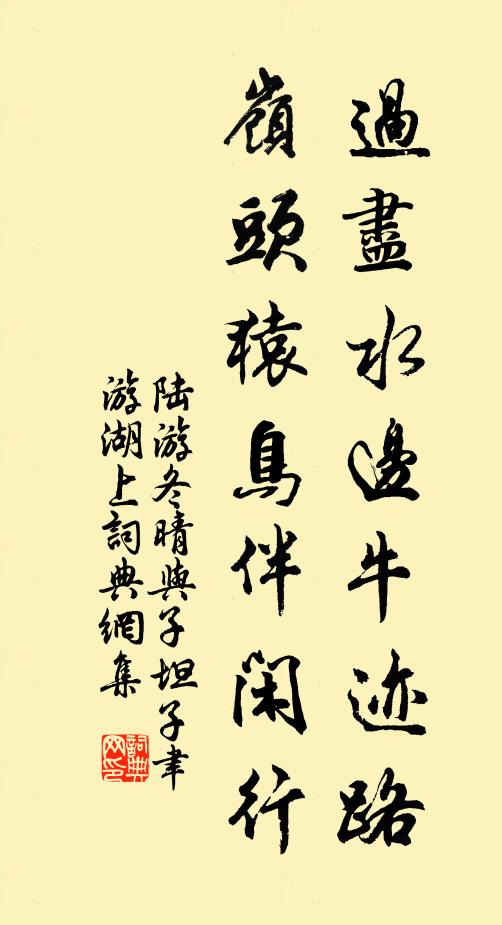 過盡水邊牛迹路
嶺頭猿鳥伴閑行
陆游冬晴與子坦子聿
游湖上詞典網集
詞典
网印